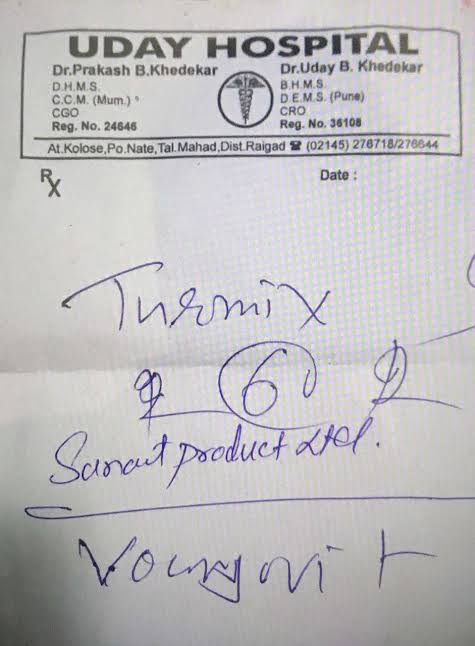 UDAY HOSPITAL
Dr.Prakash B.Khedekar
D.H.M.S.
C.C.M. (Mum.)
CGO
Reg. No. 24646
Dr.Uday B. Khedekar
B.H.M.S.
D.E.M.S. (Pune)
CRO
Reg. No. 36108
At.Kolose,Po.Nate,Tal.Mahad,Dist.Raigad ☎ (02145) 276718/276644
Rx
Date :
Turmix
60
product Ltd.